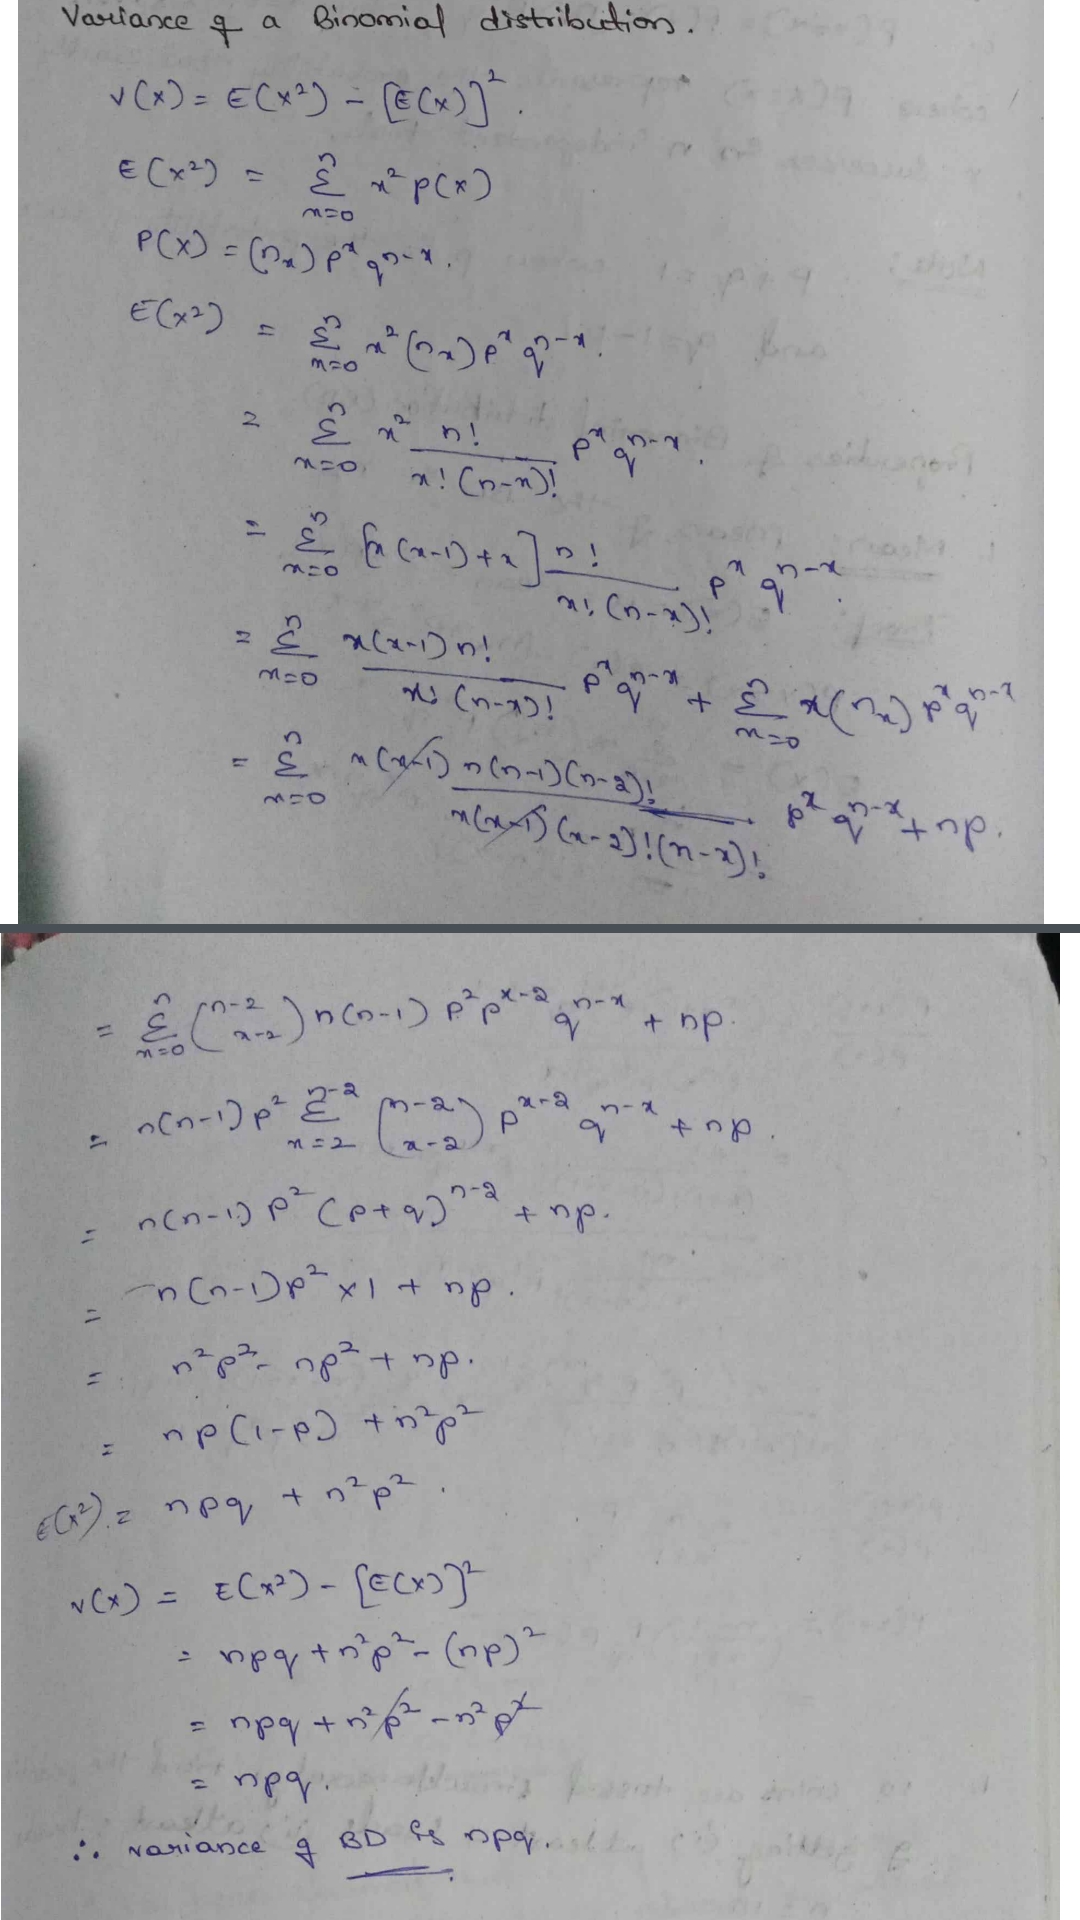 Variance of a Binomial distribution.
V(x) = E(x²) - [E(x)]².
E(x²) = Σⁿₓ₌₀ x² p(x)
P(X) = (nₓ) pˣ qⁿ⁻ˣ.
E(x²) = Σⁿₓ₌₀ x² (nₓ) pˣ qⁿ⁻ˣ.
= Σⁿₓ₌₀ x² n! / x! (n-x)! pˣ qⁿ⁻ˣ.
= Σⁿₓ₌₀ [x(x-1)+x] n! / x! (n-x)! pˣ qⁿ⁻ˣ.
= Σⁿₓ₌₀ x(x-1) n! / x! (n-x)! pˣ qⁿ⁻ˣ + Σⁿₓ₌₀ x(nₓ) pˣ qⁿ⁻ˣ
= Σⁿₓ₌₀ x(x-1) n(n-1)(n-2)! / x(x-1)(x-2)!(n-x)! pˣ qⁿ⁻ˣ + np.
= Σⁿₓ₌₀ (n-2 x-2) n(n-1) p² pˣ⁻² qⁿ⁻ˣ + np.
= n(n-1) p² Σⁿ⁻²ₓ₌₂ (n-2 x-2) pˣ⁻² qⁿ⁻ˣ + np.
= n(n-1) p² (p+q)ⁿ⁻² + np.
= n(n-1)p² ×1 + np.
= n²p² - np² + np.
= np(1-p) + n²p²
E(x²) = npq + n²p².
v(x) = E(x²) - [E(x)]²
= npq + n²p² - (np)²
= npq + n²p² - n²p²
= npq.
∴ variance of BD is npq.